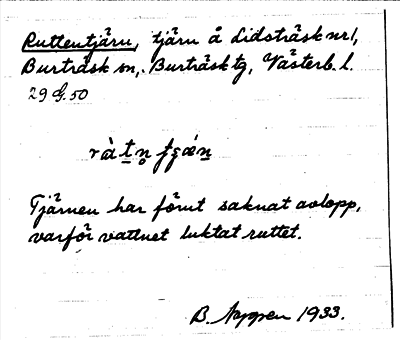 Ruttentjärn, tjärn å Lidsträsk nr 1,
Burträsk sn, Burträsk tg, Västerb. l.
29 G. 50
Tjärnen har förut saknat avlopp,
varför vattnet luktat ruttet.
B. 1933.